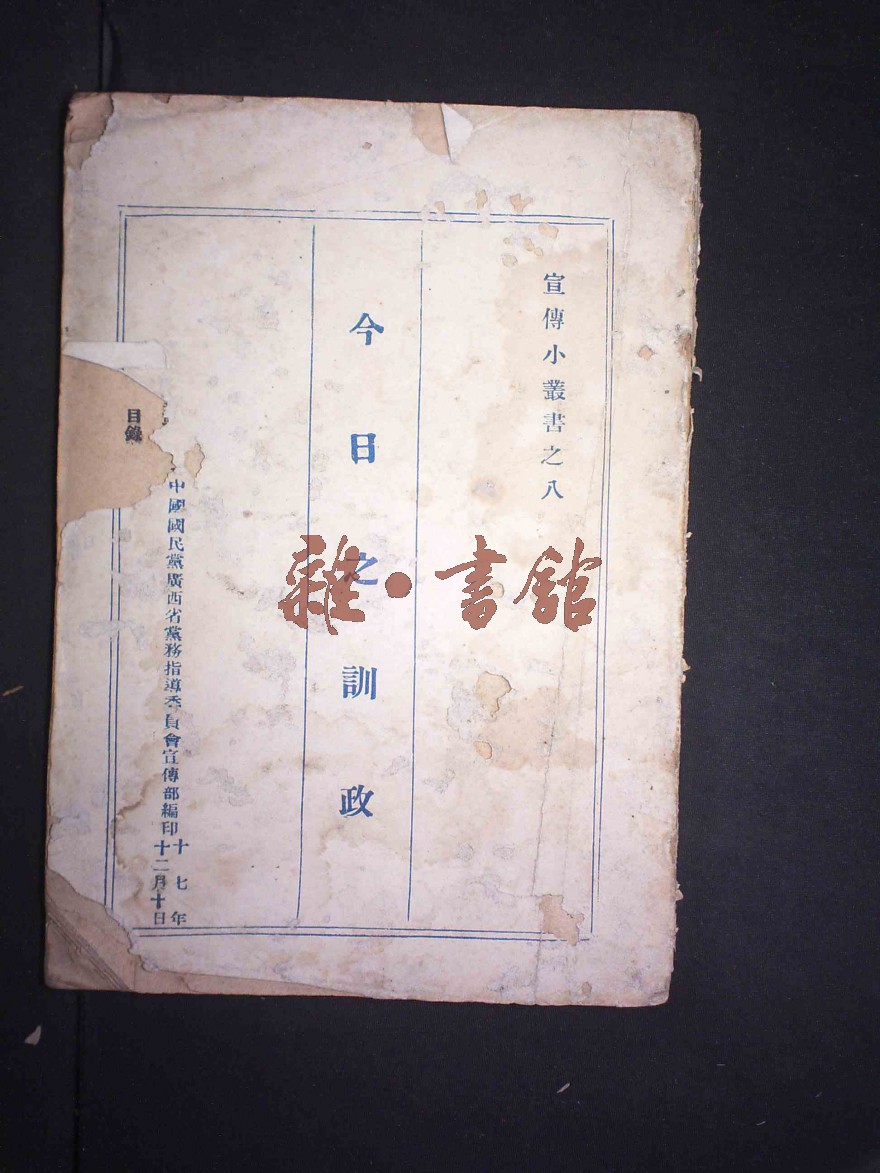 宣傳小叢書之八
今日之訓政
中國國民黨廣西省黨務指導委員會宣傳部編印
十七年
十二月十日
目錄
雜·書館